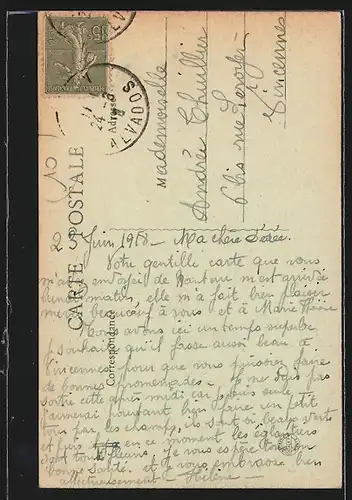 CARTE POSTALE
Correspondance
Adresse
15
24 -6
CALVADOS
Mademoiselle
Andrée Thuillier
6 bis rue
Vincennes
2 Juin 1918 - Ma chère Dédée.
Votre gentille carte que vous
m'avez envoyée de m'est arrivée
matin, elle m'a fait bien plaisir
merci beaucoup à vous et à Marie
Nous avons ici un temps superbe
je souhaite qu'il fasse aussi beau à
Vincennes pour que vous puissiez faire
de bonnes promenades. Je ne suis pas
sortie cette après midi car je suis seule
j'aimerai pourtant bien faire un petit
tour par les champs, ils sont si beaux verts
et puis en ce moment les églantiers
sont tout fleuris, je vous espère tous en
bonne santé et je vous embrasse bien
affectueusement Hélène